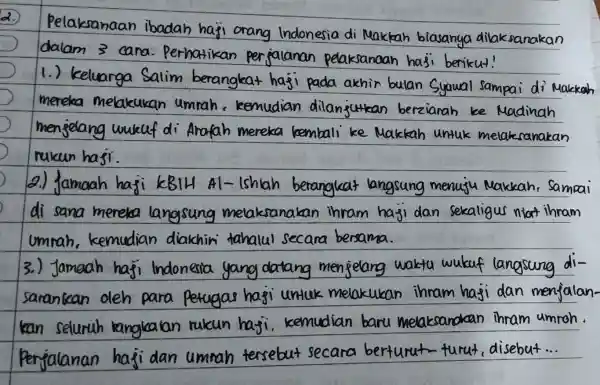 2.) Pelaksanaan ibadah haji orang Indonesia di Makkah biasanya dilaksanakan
dalam 3 cara. Perhatikan perjalanan pelaksanaan haji berikut!
1.) keluarga Salim berangkat haji pada akhir bulan Syawal sampai di Makkah
mereka melakukan umrah, kemudian dilanjutkan berziarah ke Madinah
menjelang wukuf di Arafah mereka kembali ke Makkah untuk melaksanakan
rukun haji.
2.) Jamaah haji KBIH Al-Ishlah berangkat langsung menuju Makkah, sampai
di sana mereka langsung melaksanakan ihram haji dan sekaligus niat ihram
umrah, kemudian diakhiri tahalul secara bersama.
3.) Jamaah haji Indonesia yang datang menjelang waktu wukuf langsung di-
sarankan oleh para petugas haji untuk melakukan ihram haji dan menjalan-
kan seluruh rangkaian rukun haji, kemudian baru melaksanakan ihram umroh.
Perjalanan haji dan umrah tersebut secara berturut-turut, disebut ...